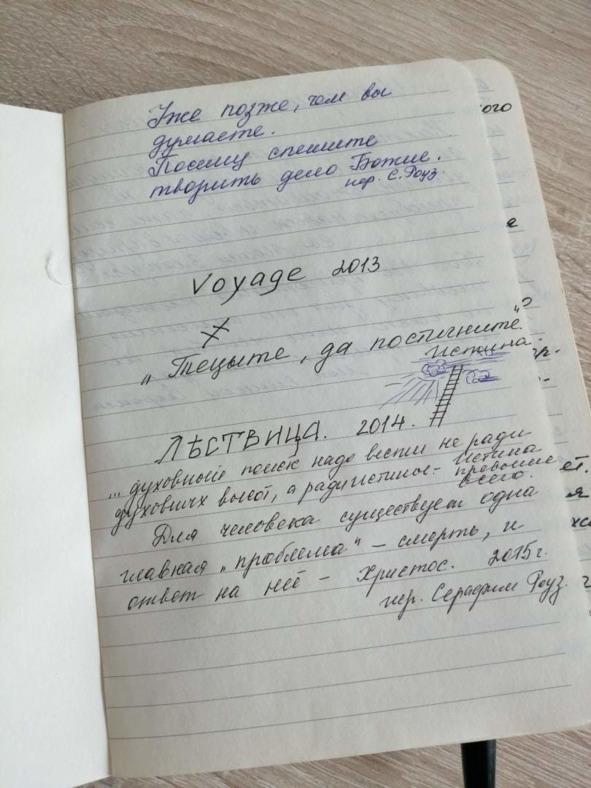 Уже позже, чем вы
думаете.
Посему спешите
творить дело Божие.
иер. С. Роуз.
Voyage 2013
„Тецыте, да постигните"
Истина.
ЛѢСТВИЦА. 2014.
... духовный поиск надо вести не ради
духовных высот, а ради истины - Истина
превыше
всего.
Для человека существует одна
главная „проблема" - смерть, и
ответ на неё - Христос. 2015г.
иер. Серафим Роуз.
ого
е
?
ет.
я